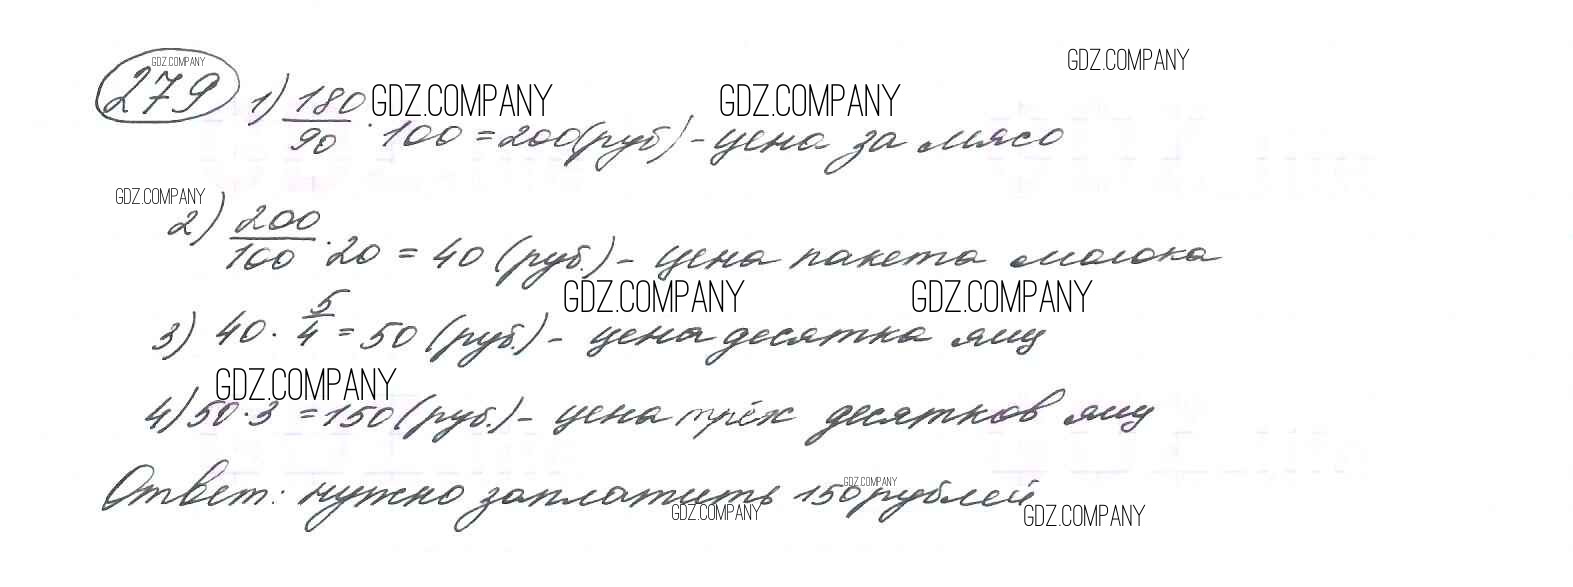 GDZ.COMPANY
GDZ.COMPANY
279 1) 180/90 · 100 = 200 (руб) - цена за мясо
GDZ.COMPANY GDZ.COMPANY
GDZ.COMPANY
2) 200/100 · 20 = 40 (руб.) - цена пакета молока
GDZ.COMPANY GDZ.COMPANY
3) 40 · 5/4 = 50 (руб.) - цена десятка яиц
GDZ.COMPANY
4) 50 · 3 = 150 (руб.) - цена трёх десятков яиц
GDZ.COMPANY
Ответ: нужно заплатить 150 рублей
GDZ.COMPANY GDZ.COMPANY